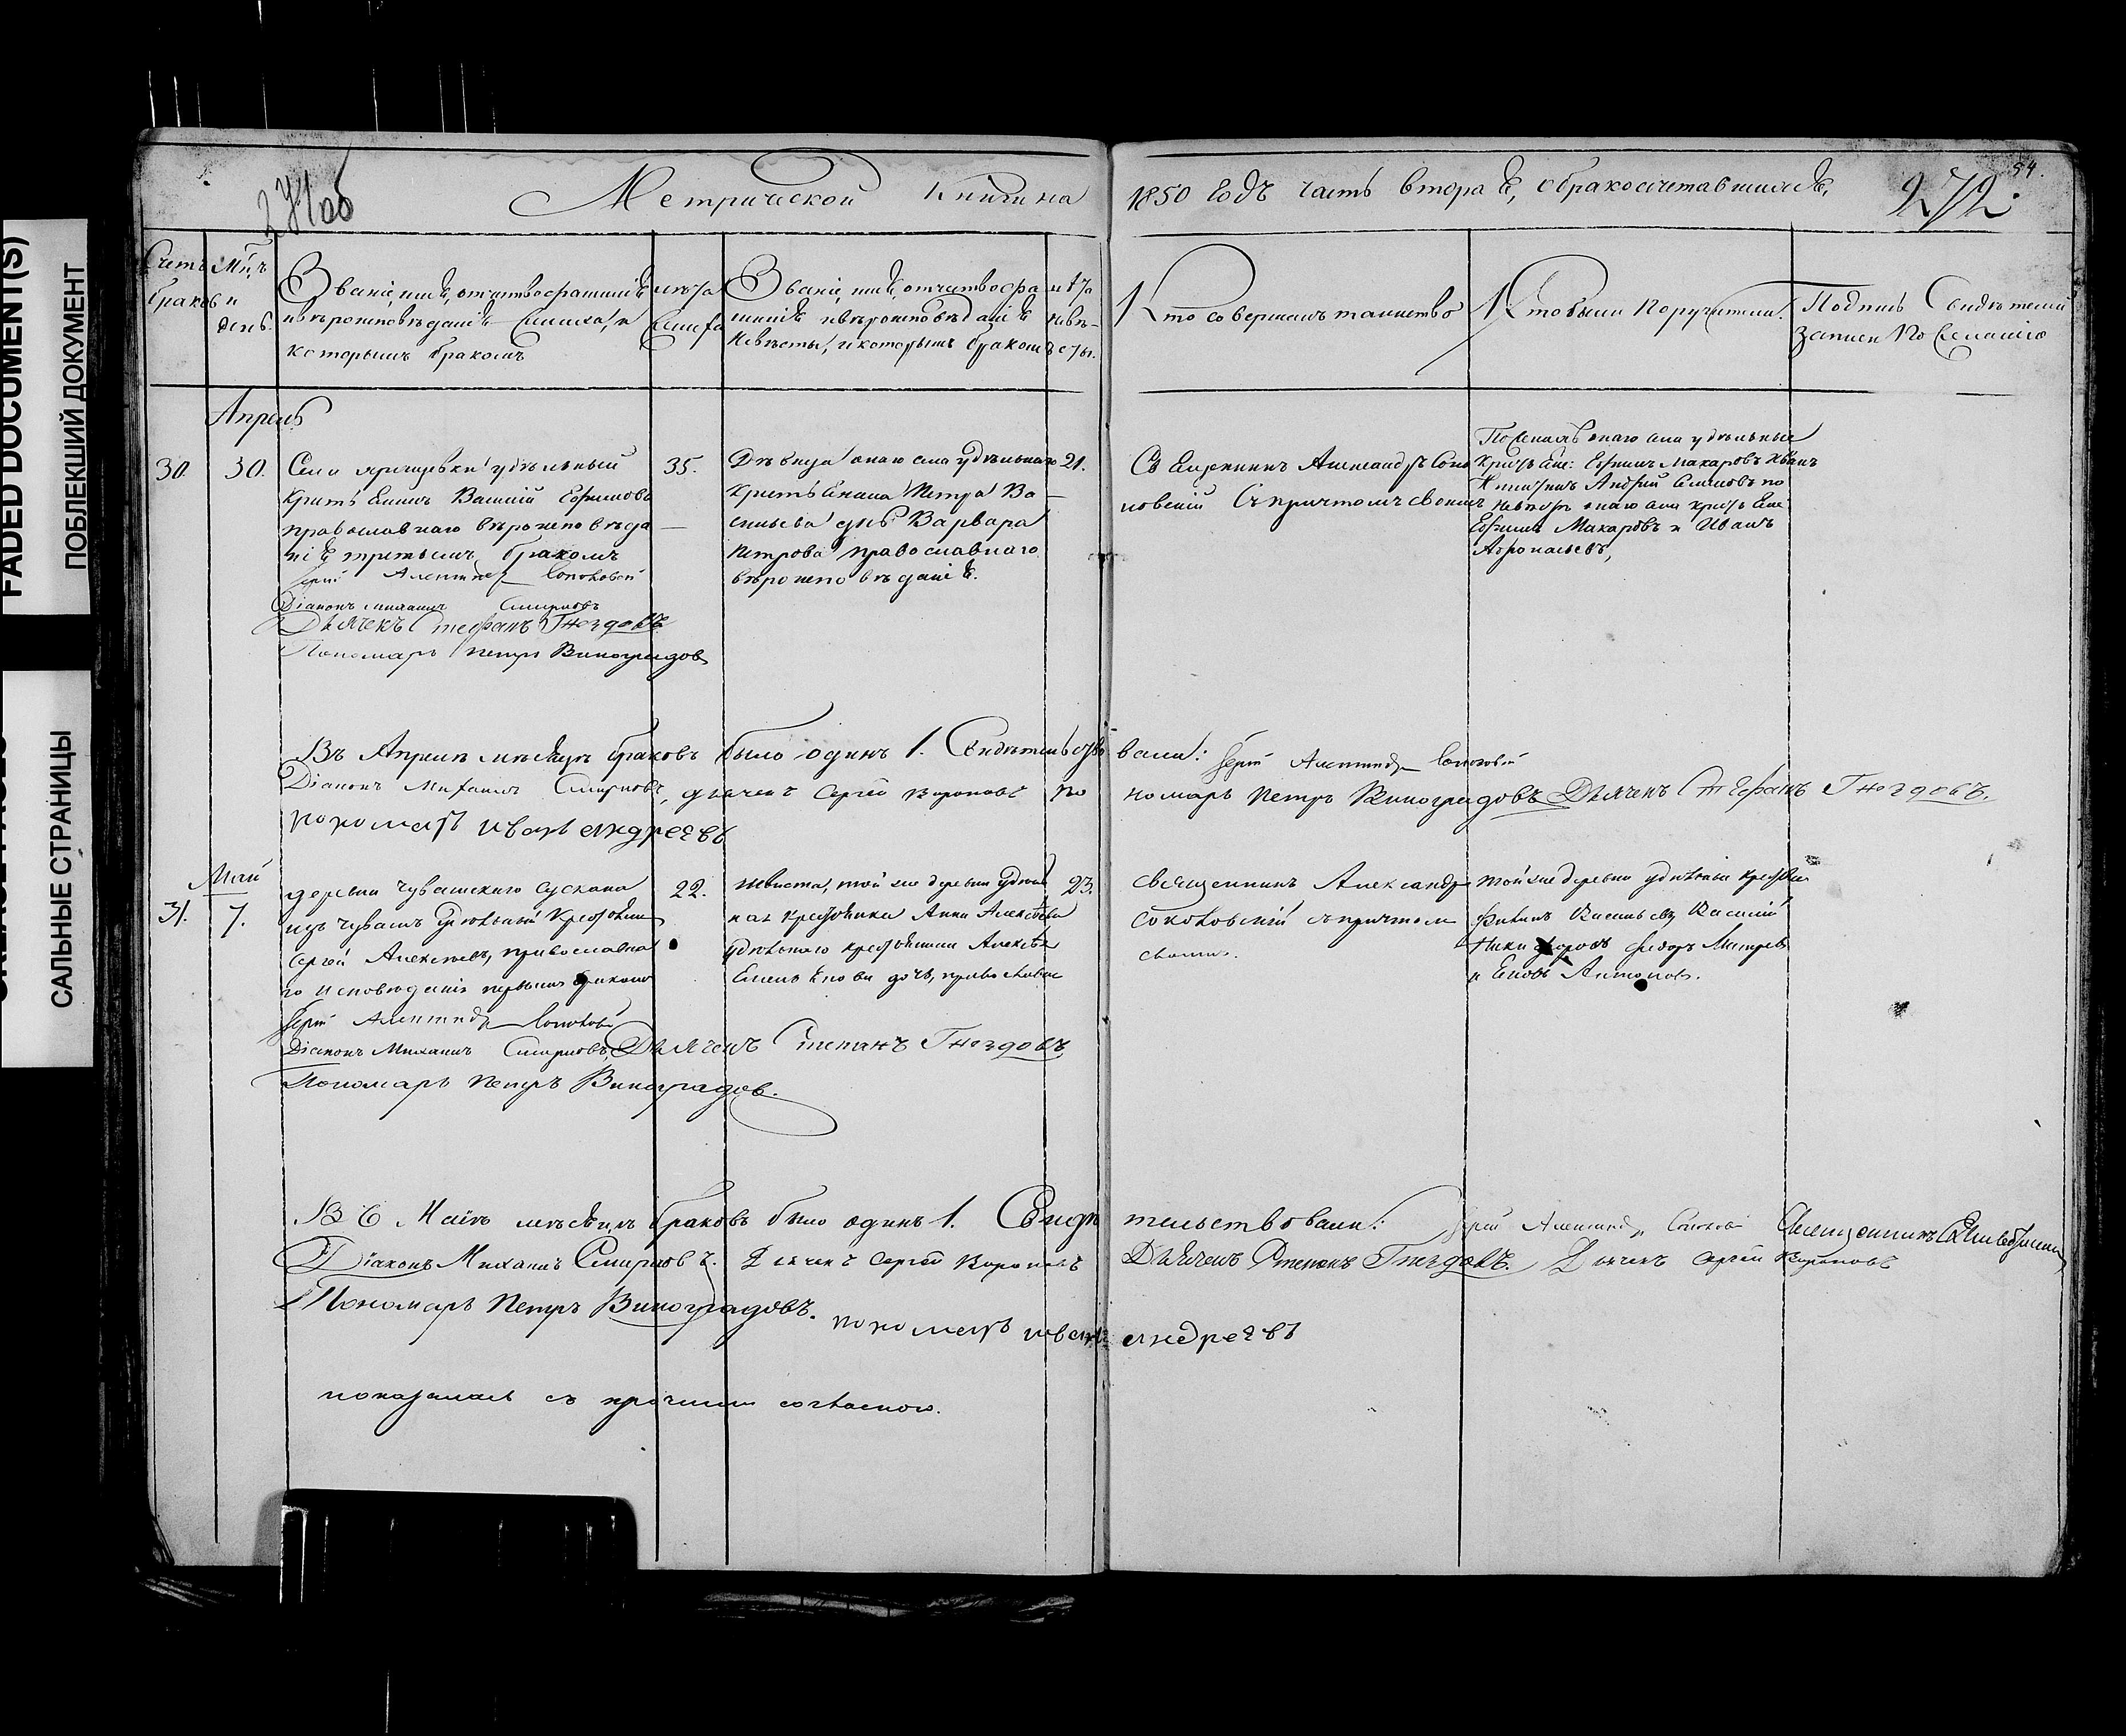 FADED DOCUMENT(S)
ПОБЛЕКШИЙ ДОКУМЕНТ
САЛЬНЫЕ СТРАНИЦЫ
271об
Метрической книги на 1850 годъ часть втора я, о бракосочетавшихся,
272.
54.
Счетъ браковъ
Мц,ъ и день.
Званіе, имя, отчество фамилія
и вѣроисповѣданіе жениха, и
которымъ бракомъ
лѣта
жениха
Званіе, имя, отчество фа
милія и вѣроисповѣданіе
невѣсты, и которымъ бракомъ
лѣта
невѣ-
сты.
Кто совершалъ таинство
Кто были поручители.
Подпись свидѣтелей
записи по желанію
Апрель
30.
30.
Села удѣльный
крестьянинъ Василій Ефимовъ
православнаго вѣроисповѣда
нія третьимъ бракомъ
35.
Дѣвица онаго села удѣльнаго
крестьянина Петра Ва
сильева дчь Варвара
Петрова православнаго
вѣроисповѣданія.
21.
Священникъ Александръ Соко
ловскій съ причтомъ своимъ
По женихѣ онаго села удѣльные
крестьяне: Ефимъ Макаровъ Иванъ
Андрей по
невѣстѣ онаго села крестьяне
Ефимъ Макаровъ и Иванъ
Іерей Александръ Соколовскій
Діаконъ Михаилъ Смирновъ
Дьячекъ Стефанъ Гнездовъ
Пономарь Петръ Виноградовъ
Въ Апрелѣ мѣсяцѣ браковъ было одинъ 1. Свидѣтельствовали: Іерей Александръ Соколовскій
Діаконъ Михаилъ Смирновъ, дьячекъ Сергей Вороновъ пономарь Петръ Виноградовъ Дьячекъ Стефанъ Гнездовъ.
пономарь иванъ андреевъ
Май
31.
7.
деревни чувашскаго Сускана
изъ чувашъ удѣльный крестьянинъ
Сергей Алексѣевъ, православна
го исповѣданія первымъ бракомъ
22.
невѣста, той же деревни удѣль
ная крестьянка Анна Алексѣева
удѣльнаго крестьянина Алексѣя
дочь, православнаго
23.
священникъ Александръ
Соколовскій съ причтомъ
своимъ.
той же деревни удѣльные крестьяне
Филипъ Васильевъ Василій
Никифоровъ Федоръ
и Антоновъ.
Іерей Александръ Соколовскій
Діаконъ Михаилъ Смирновъ, Дьячекъ Степанъ Гнездовъ
Пономарь Петръ Виноградов.
Въ Маіѣ мѣсяцѣ браковъ было одинъ 1. Свидѣтельствовали: Іерей Александръ Соколовскій Священникъ
Діаконъ Михаилъ Смирновъ. Дьячекъ Сергей Вороновъ Дьячекъ Степанъ Гнездовъ. Дьячекъ Сергей Вороновъ
Пономарь Петръ Виноградовъ. пономарь иванъ андреевъ
показалась съ прочими согласною.